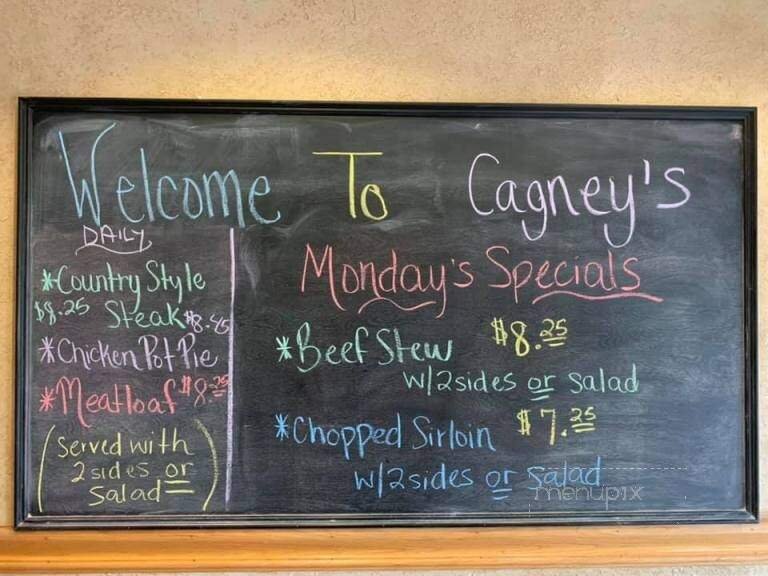 Welcome To Cagney's
DAILY
*Country Style
$8.25 Steak $8.45
*Chicken Pot Pie
*Meatloaf $8.25
(Served with
2 sides or
Salad)
Monday's Specials
*Beef Stew $8.25
w/2sides or Salad
*Chopped Sirloin $7.25
w/2sides or Salad
menupix